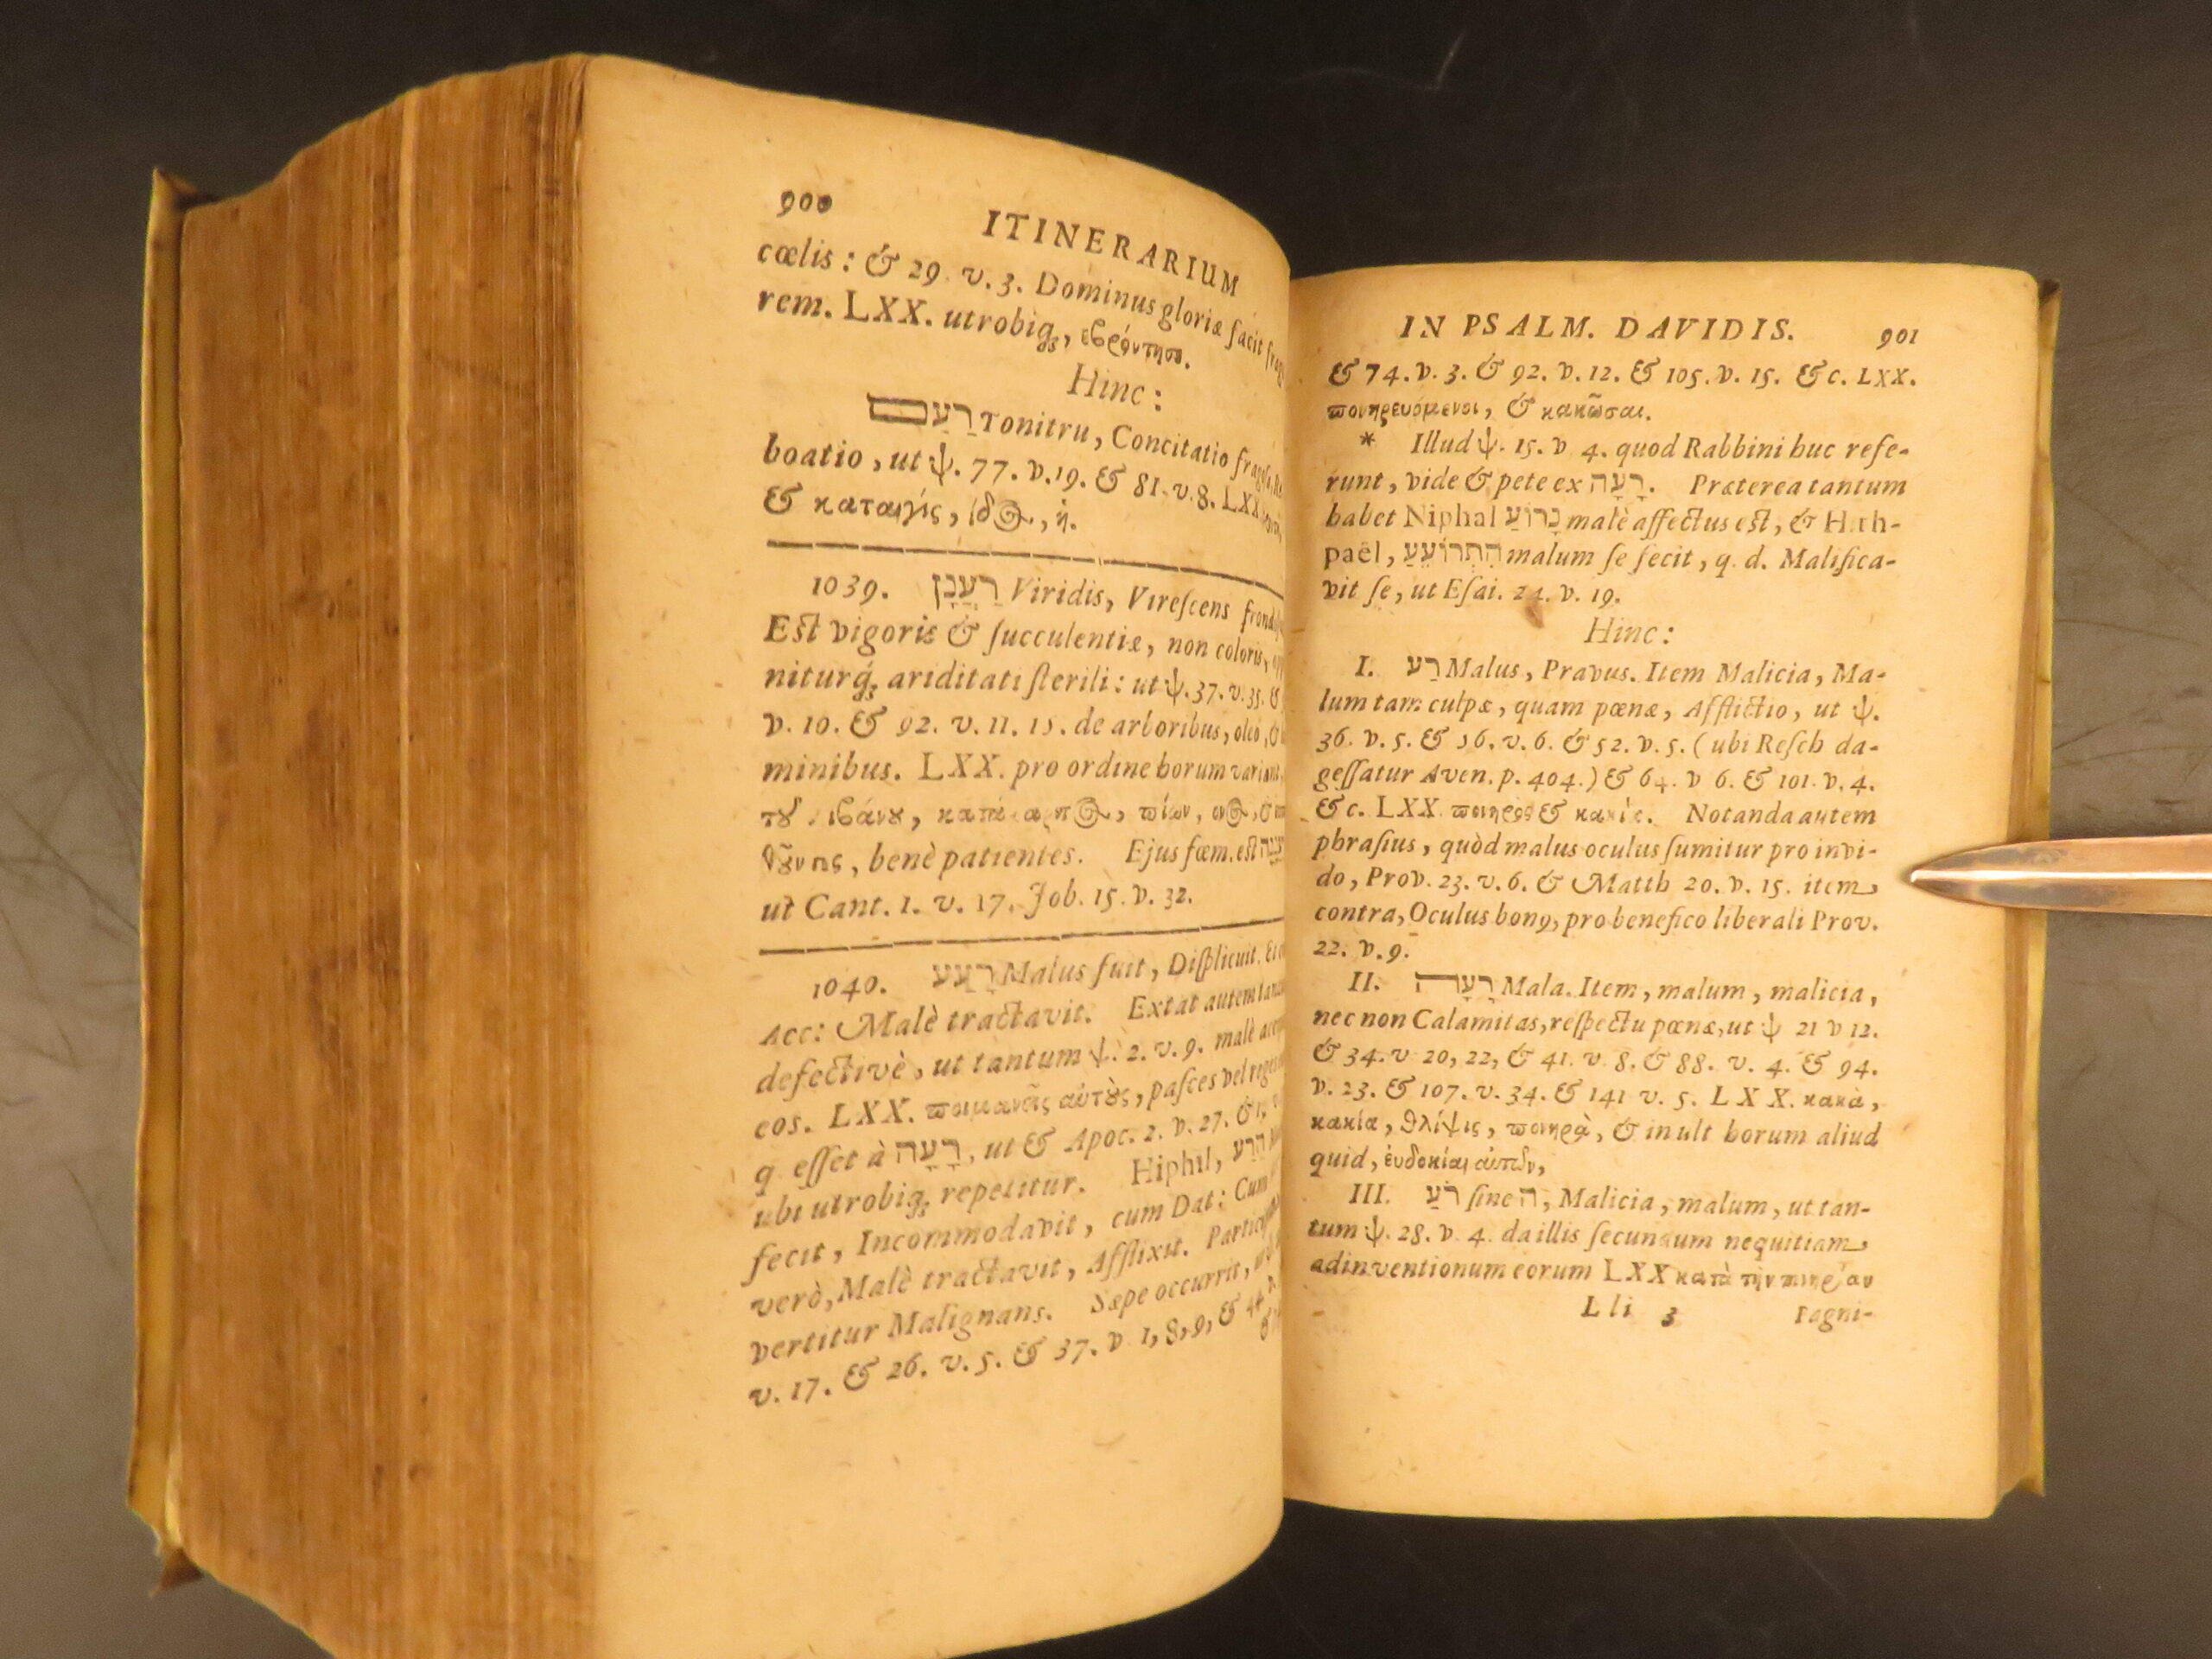 900 ITINERARIUM
cœlis: & 29. v. 3. Dominus gloriæ facit
rem. LXX. utrobiq;,
Hinc:
רַעַם Tonitru, Concitatio
boatio, ut ψ. 77. v. 19. & 81. v. 8. LXX
& καταιγίς, ίδ⊙, ἡ.
1039. רַעֲנָן Viridis, Virescens
Est vigoris & succulentiæ, non coloris,
niturq́; ariditati sterili: ut ψ. 37. v. 35. &
v. 10. & 92. v. 11. 15. de arboribus, oleo, &
minibus. LXX. pro ordine horum variant,
benè patientes. Ejus fœm. est
ut Cant. 1. v. 17. Job. 15. v. 32.
1040. רָעַע Malus fuit, Displicuit.
Acc: Malè tractavit. Extat autem
defectivè, ut tantum ψ. 2. v. 9. malè
eos. LXX. ποιμανεῖς αὐτȣ̀ς, pasces vel
q. esset à רָעָה, ut & Apoc. 2. v. 27. &
ubi utrobiq; repetitur. Hiphil, הֵרַע
fecit, Incommodavit, cum Dat: Cum
verò, Malè tractavit, Afflixit.
vertitur Malignans. Sæpe occurrit,
v. 17. & 26. v. 5. & 37. v. 1, 8, 9, &
IN PSALM. DAVIDIS. 901
& 74. v. 3. & 92. v. 12. & 105. v. 15. &c. LXX.
πονηρευόμενοι, & κακῶσαι.
* Illud ψ. 15. v 4. quod Rabbini huc refe-
runt, vide & pete ex רָעָה. Præterea tantum
habet Niphal נָרוֹעַ malè affectus est, & Hith-
paël, הִתְרוֹעֵעַ malum se fecit, q. d. Malifica-
vit se, ut Esai. 24. v. 19.
Hinc:
I. רַע Malus, Pravus. Item Malicia, Ma-
lum tam culpæ, quam pœnæ, Afflictio, ut ψ.
36. v. 5. & 56. v. 6. & 52. v. 5. (ubi Resch da-
gessatur Aven. p. 404.) & 64. v 6. & 101. v. 4.
&c. LXX. πονηρὸς & Notanda autem
phrasius, quòd malus oculus sumitur pro invi-
do, Prov. 23. v. 6. & Matth 20. v. 15. item
contra, Oculus bonꝰ, pro benefico liberali Prov.
22. v. 9.
II. רָעָה Mala. Item, malum, malicia,
nec non Calamitas, respectu pœnæ, ut ψ 21 v 12.
& 34. v 20, 22, & 41. v. 8. & 88. v. 4. & 94.
v. 23. & 107. v. 34. & 141 v. 5. LXX. κακὰ,
κακία, θλίψις, πονηρὰ, & in ult horum aliud
quid, ἐυδοκίαι αὐτῶν,
III. רֹעַ sine ה, Malicia, malum, ut tan-
tum ψ. 28. v. 4. da illis secundum nequitiam
adinventionum eorum LXX κατὰ τὴν
Lll 3 Pagni-